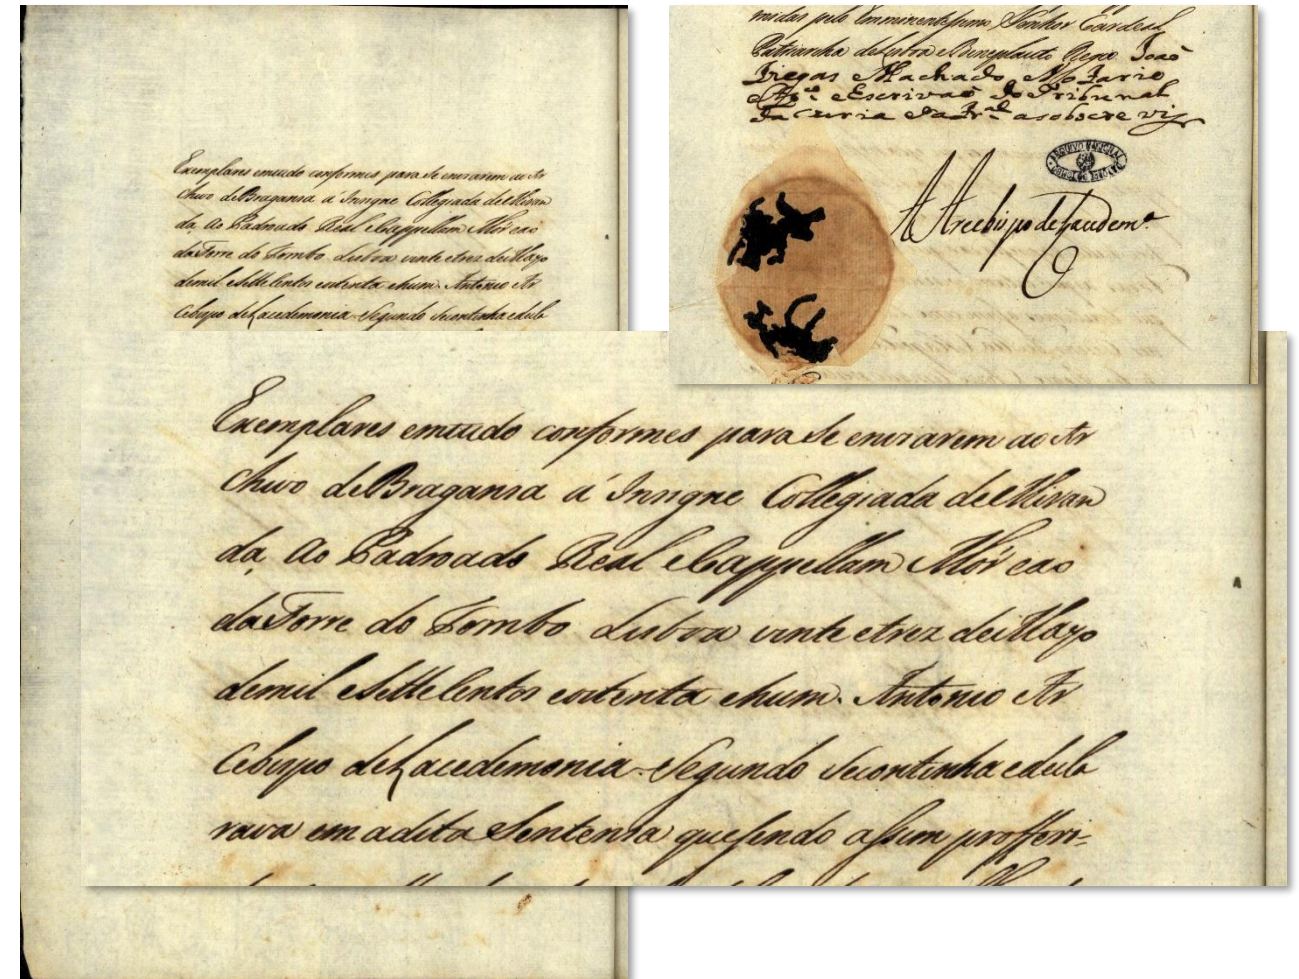 Exemplares emtudo conformes para Se enviarem ao Ar
chivo de Bragansa á Insigne Collegiada de Miran
da, ao Padroado Real e Cappellam Mór e ao
da Torre do Tombo Lisboa vinte e trez de Mayo
de mil e Settecentos e outenta e hum. Antonio Ar
cebispo de Lacedemonia
midas pelo Eminentissimo Senhor Cardeal
Patriarcha de Lisboa e Beneplacito Regio João
Viegas e Machado Notario
App.co e Escrivaõ do Tribunal
da Curia e da Patr.al a sobscrevi
ARQUIVO NACIONAL
TORRE DO TOMBO
A Arcebispo de Lacedem.a
Exemplares emtudo conformes para Se enviarem ao Ar
chivo de Bragansa á Insigne Collegiada de Miran
da, ao Padroado Real e Cappellam Mór e ao
da Torre do Tombo Lisboa vinte e trez de Mayo
de mil e Settecentos e outenta e hum. Antonio Ar
cebispo de Lacedemonia Segundo Secontinha edecla
rava em a dita Sentensa que sendo assim profferi-